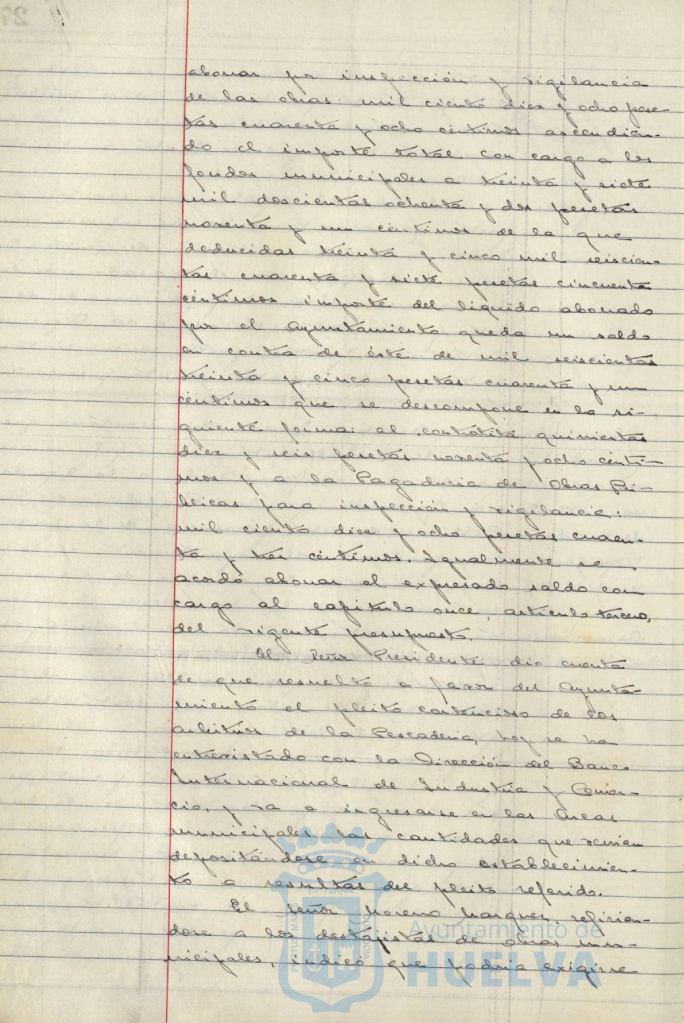 abonar por inspección y vigilancia
de las obras: mil ciento diez y ocho pese-
tas cuarenta y ocho céntimos ascendien-
do el importe total con cargo a los
fondos municipales a treinta y siete
mil doscientas ochenta y dos pesetas
noventa y un céntimos de la que
deducidas treinta y cinco mil seiscien-
tas cuarenta y siete pesetas cincuenta
céntimos importe del líquido abonado
por el Ayuntamiento queda un saldo
en contra de éste de mil seiscientas
treinta y cinco pesetas cuarenta y un
céntimos que se descompone en la si-
guiente forma: al contratista quinientas
diez y seis pesetas noventa y ocho cénti-
mos y a la Pagaduria de Obras Pú-
blicas para inspección y vigilancia:
mil ciento diez y ocho pesetas cuaren-
ta y tres céntimos. Igualmente se
acordó abonar el expresado saldo con
cargo al capítulo once, artículo tercero,
del vigente presupuesto.
El Señor Presidente dio cuenta
de que resuelto a favor del Ayunta-
miento el pleito contencioso de los
arbitrios de la Pescaderia, hoy se ha
entrevistado con la Dirección del Banco
Internacional de Industria y Comer-
cio, y va a ingresarse en las Arcas
municipales las cantidades que venian
depositándose en dicho establecimien-
to a resultas del pleito referido.
El Señor Moreno Marquez, refirien-
dose a los destajistas de obras mu-
nicipales, indicó que podria exigirse
Ayuntamiento de
HUELVA